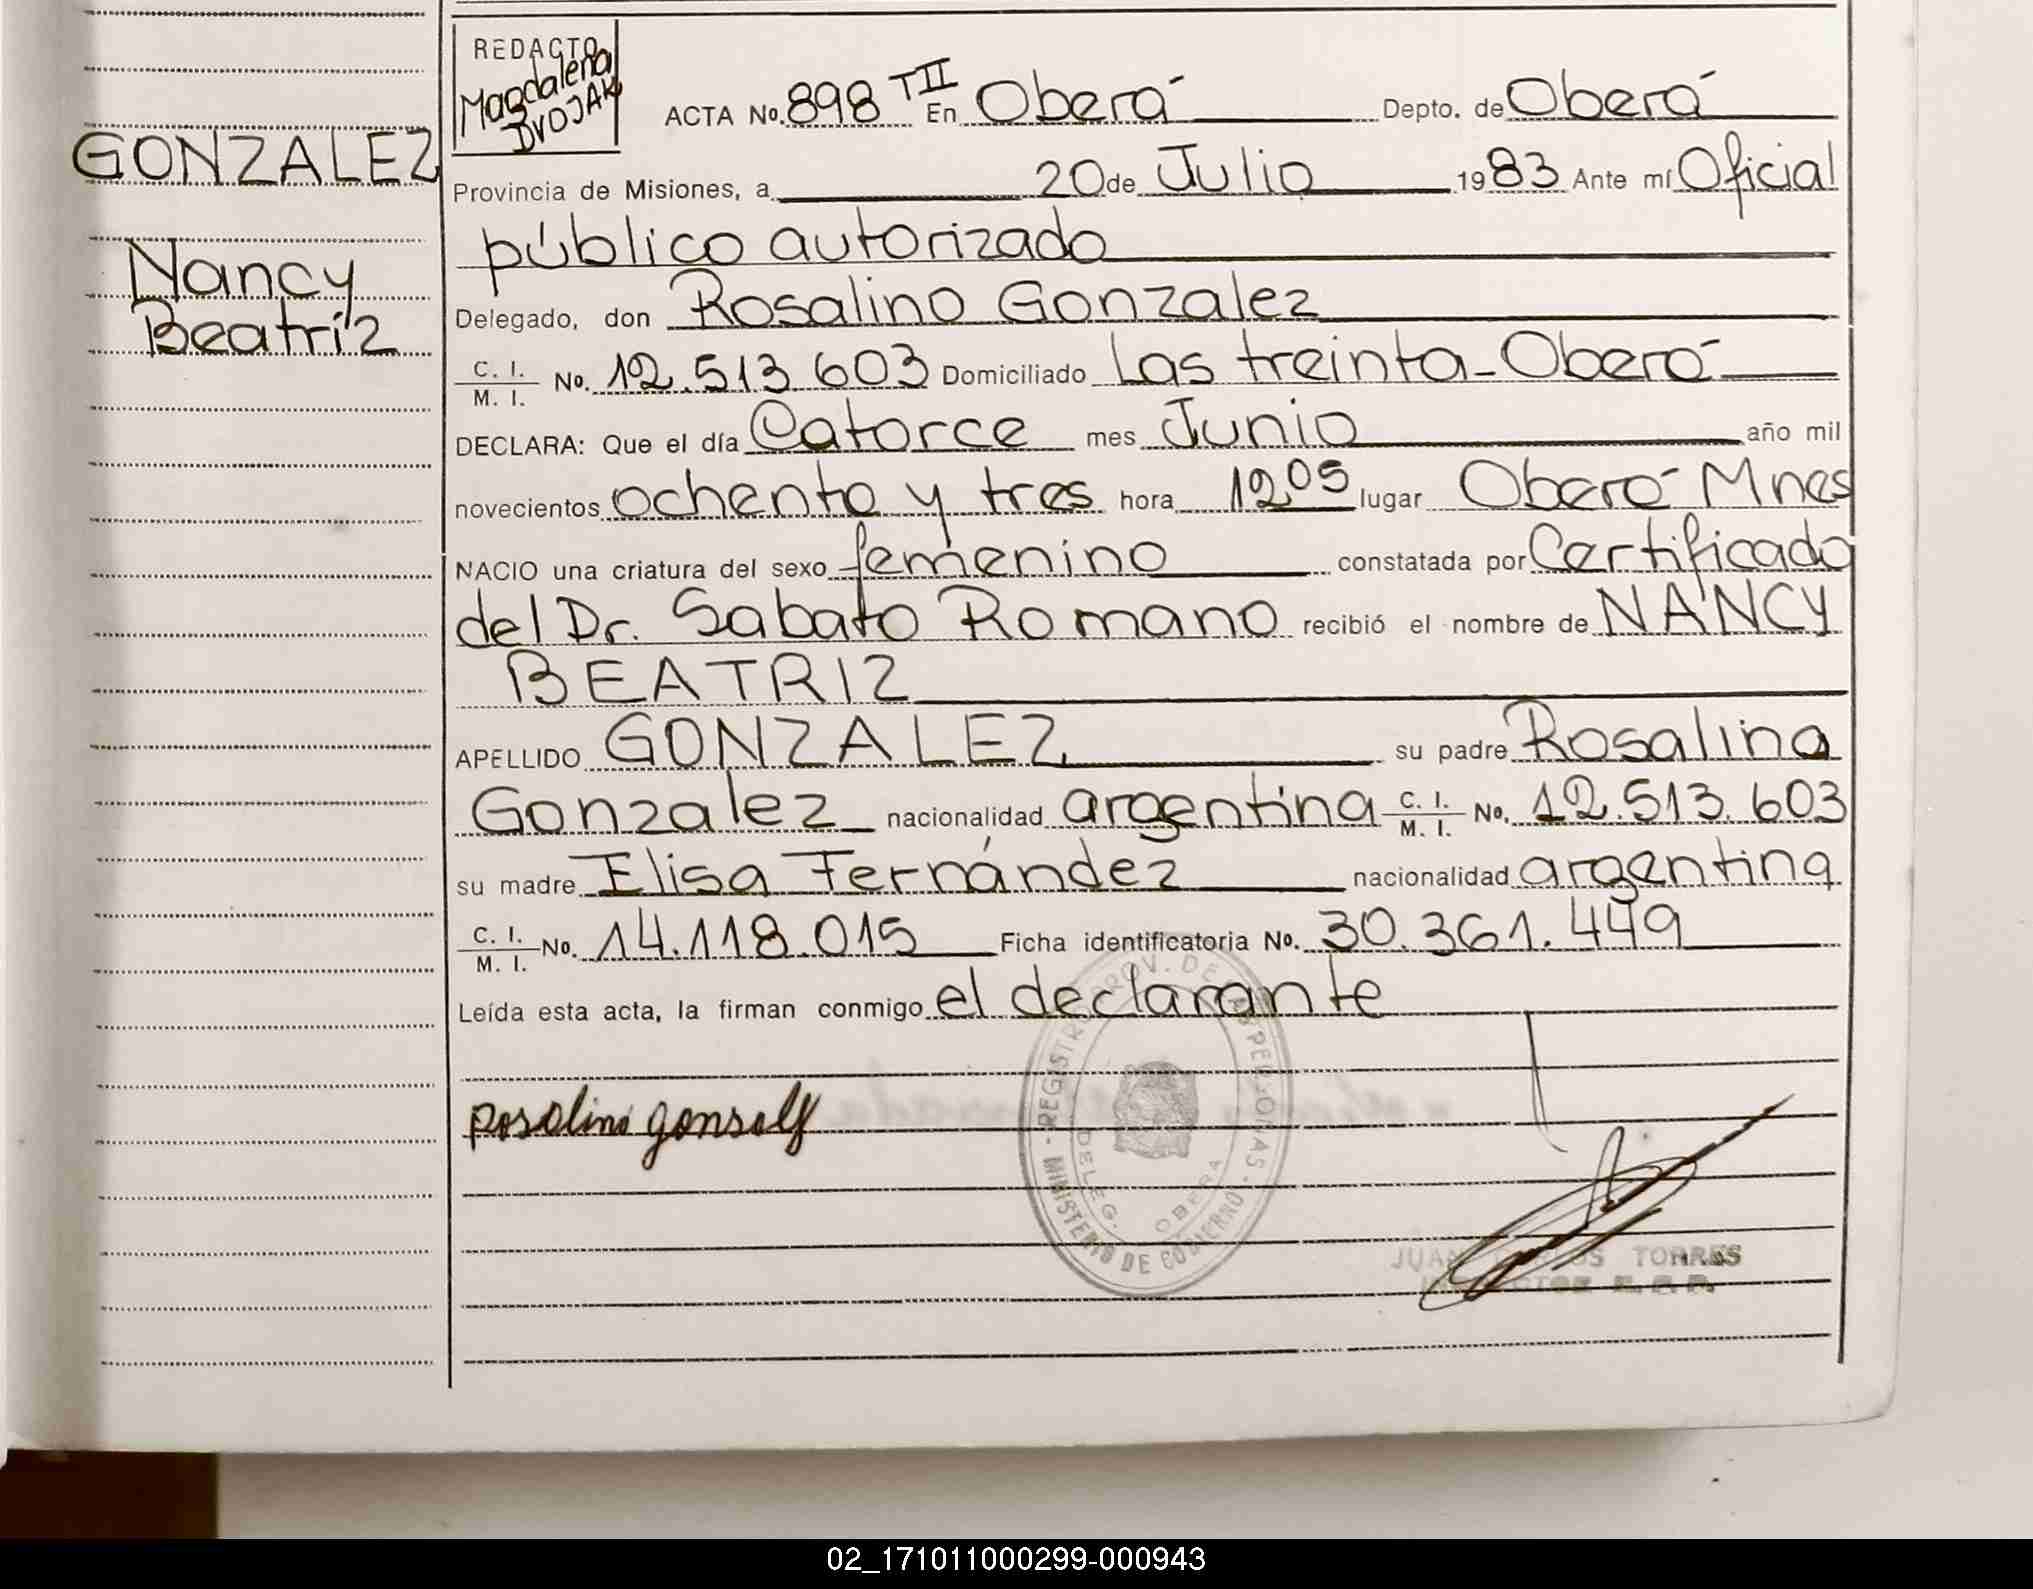 REDACTO
Magdalena
DVOJAK
GONZALEZ
Nancy
Beatriz
ACTA No. 898 TII En Oberá Depto. de Oberá
Provincia de Misiones, a 20 de Julio 1983 Ante mí Oficial
público autorizado
Delegado, don Rosalino Gonzalez
C. I. / M. I. No. 12.513.603 Domiciliado Las treinta - Oberá
DECLARA: Que el día Catorce mes Junio año mil
novecientos ochenta y tres hora 12,05 lugar Oberá Mnes
NACIO una criatura del sexo femenino constatada por Certificado
del Dr. Sabato Romano recibió el nombre de NANCY
BEATRIZ
APELLIDO GONZALEZ su padre Rosalino
Gonzalez nacionalidad argentina C. I. / M. I. No. 12.513.603
su madre Elisa Fernández nacionalidad argentina
C. I. / M. I. No. 14.118.015 Ficha identificatoria No. 30.361.449
Leída esta acta, la firman conmigo el declarante
REGISTRO PROV. DE LAS PERSONAS - MINISTERIO DE GOBIERNO -
DELEG. OBERA
Rosolino gonsalf
JUAN CARLOS TORRES
02_171011000299-000943